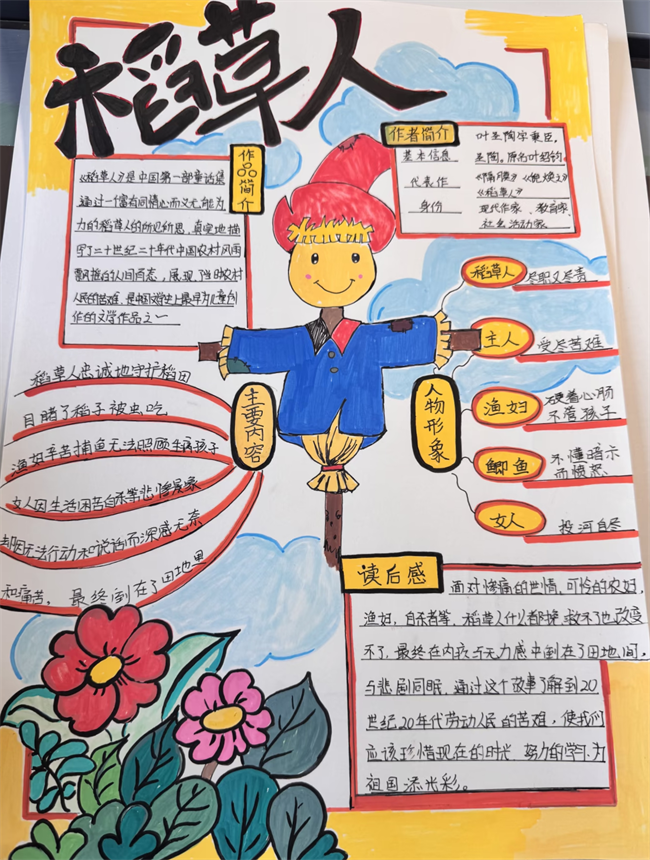 稻草人
作品简介
《稻草人》是中国第一部童话集
通过一个富有同情心而又无能为
力的稻草人的所见所思,真实地描
写了二十世纪二十年代中国农村风雨
飘摇的人间百态,展现了当时农村
人民的苦难,是中国文学史上最早为儿童创
作的文学作品之一
作者简介
基本信息
叶圣陶字秉臣,
圣陶。原名叶绍钧。
代表作
《隔膜》《倪焕之》
《稻草人》
身份
现代作家、教育家、
社会活动家
主要内容
稻草人忠诚地守护稻田
目睹了稻子被虫吃
渔妇辛苦捕鱼无法照顾生病孩子
女人因生活困苦自杀等悲惨景象
却因无法行动和说话而深感无奈
和痛苦。最终倒在了田地里
人物形象
稻草人
尽职又尽责
主人
受尽苦难
渔妇
硬着心肠
不管孩子
鲫鱼
不懂暗示
而愤怒
女人
投河自尽
读后感
面对惨痛的世情,可怜的农妇,
渔妇,自杀者等,稻草人什么都挽救不了也改变
不了,最终在内疚与无力感中倒在了田地间。
与悲剧同眠,通过这个故事了解到20
世纪20年代劳动人民的苦难,使我们
应该珍惜现在的时光,努力的学习,为
祖国添光彩。